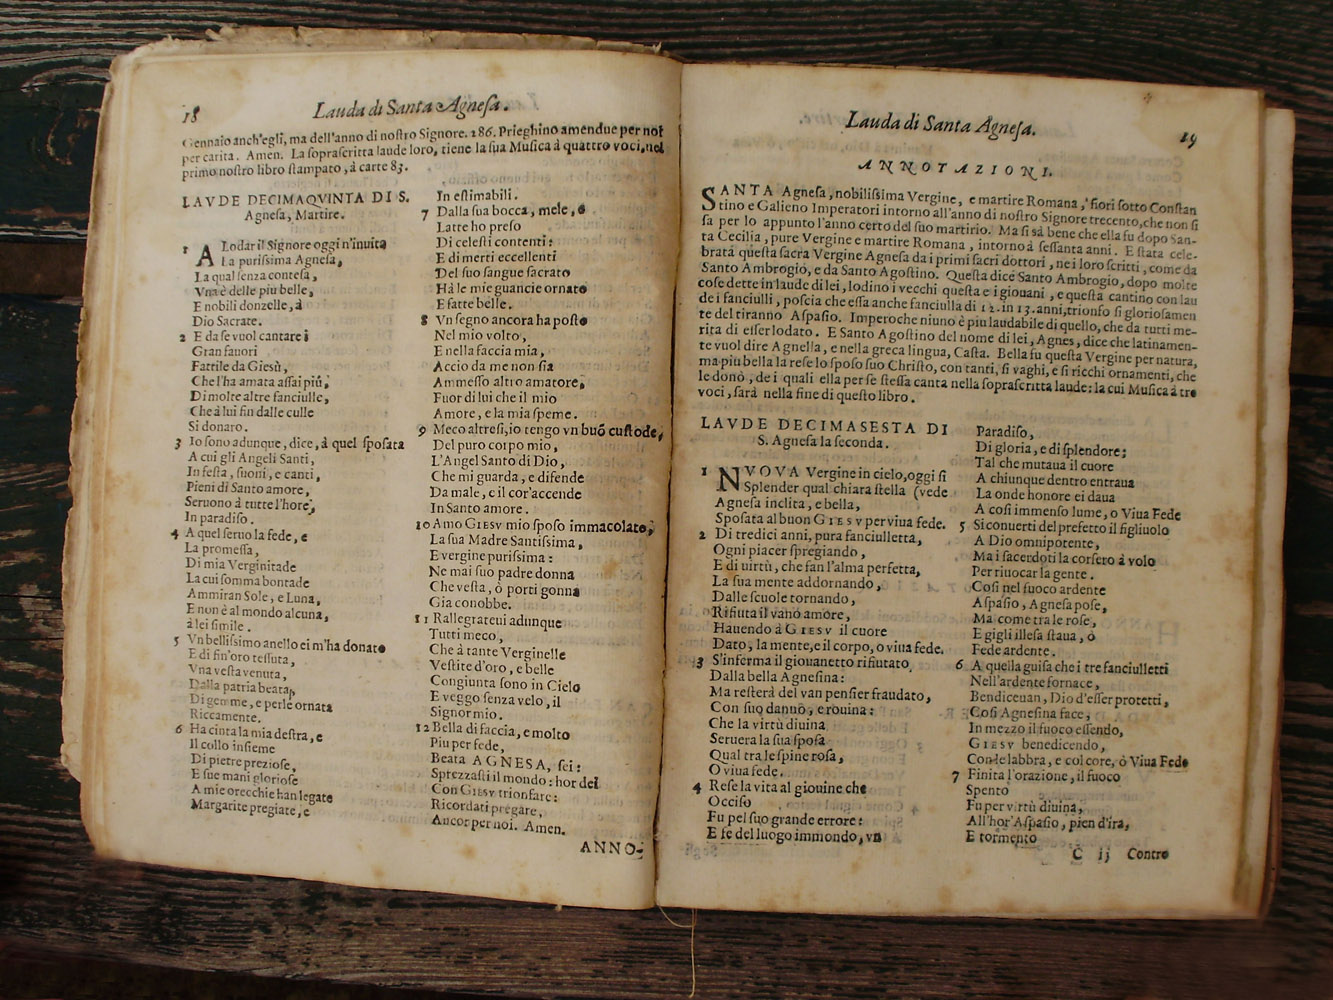 18
Lauda di Santa Agnesa.
Gennaio anch'egli, ma dell'anno di nostro Signore. 286. Prieghino amendue per noi
per carita. Amen. La soprascritta laude loro, tiene la sua Musica à quattro voci, nel
primo nostro libro stampato, à carte 83.
LAVDE DECIMAQVINTA DI S.
Agnesa, Martire.
1 A Lodar il Signore oggi n'inuita
La purissima Agnesa,
La qual senza contesa,
Vna è delle piu belle,
E nobili donzelle, à
Dio Sacrate.
2 E da se vuol cantare i
Gran fauori
Fattile da Giesù,
Che l'ha amata assai più,
Di molte altre fanciulle,
Che à lui fin dalle culle
Si donaro.
3 Io sono adunque, dice, à quel sposata
A cui gli Angeli Santi,
In festa, suoni, e canti,
Pieni di Santo amore,
Seruono à tutte l'hore,
In paradiso.
4 A quel seruo la fede, e
La promessa,
Di mia Verginitade
La cui somma bontade
Ammiran Sole, e Luna,
E non è al mondo alcuna,
à lei simile.
5 Vn bellissimo anello ei m'ha donato
E di fin'oro tessuta,
Vna vesta venuta,
Dalla patria beata,
Di gemme, e perle ornata
Riccamente.
6 Ha cinta la mia destra, e
Il collo insieme
Di pietre preziose,
E sue mani gloriose
A mie orecchie han legate
Margarite pregiate, e
In estimabili.
7 Dalla sua bocca, mele, e
Latte ho preso
Di celesti contenti:
E di merti eccellenti
Del suo sangue sacrato
Hà le mie guancie ornato
E fatte belle.
8 Vn segno ancora ha posto
Nel mio volto,
E nella faccia mia,
Accio da me non sia
Ammesso altro amatore,
Fuor di lui che il mio
Amore, e la mia speme.
9 Meco altresi, io tengo vn buō custode,
Del puro corpo mio,
L'Angel Santo di Dio,
Che mi guarda, e difende
Da male, e il cor'accende
In Santo amore.
10 Amo GIESV mio sposo immacolato,
La sua Madre Santissima,
E vergine purissima:
Ne mai suo padre donna
Che vesta, ò porti gonna
Gia conobbe.
11 Rallegrateui adunque
Tutti meco,
Che à tante Verginelle
Vestite d'oro, e belle
Congiunta sono in Cielo
E veggo senza velo, il
Signor mio.
12 Bella di faccia, e molto
Piu per fede,
Beata AGNESA, sei:
Sprezzasti il mondo: hor dei
Con GIESV trionfare:
Ricordati pregare,
Ancor per noi. Amen.
ANNO-
Lauda di Santa Agnesa.
19
ANNOTAZIONI.
SANTA Agnesa, nobilissima Vergine, e martire Romana, fiori sotto Constan
tino e Galieno Imperatori intorno all'anno di nostro Signore trecento, che non si
sa per lo appunto l'anno certo del suo martirio. Ma si sà bene che ella fu dopo San-
ta Cecilia, pure Vergine e martire Romana, intorno à sessanta anni. E stata cele-
brata questa sacra Vergine Agnesa da i primi sacri dottori, ne i loro scritti, come da
Santo Ambrogio, e da Santo Agostino. Questa dice Santo Ambrogio, dopo molte
cose dette in laude di lei, lodino i vecchi questa e i giouani, e questa cantino con lau
de i fanciulli, poscia che essa anche fanciulla di 12. in 13. anni, trionfo si gloriosamen
te del tiranno Aspasio. Imperoche niuno è piu laudabile di quello, che da tutti me-
rita di esser lodato. E Santo Agostino del nome di lei, Agnes, dice che latinamen-
te vuol dire Agnella, e nella greca lingua, Casta. Bella fu questa Vergine per natura,
ma piu bella la rese lo sposo suo Christo, con tanti, si vaghi, e si ricchi ornamenti, che
le donò, de i quali ella per se stessa canta nella soprascritta laude: la cui Musica à tre
voci, sarà nella fine di questo libro.
LAVDE DECIMASESTA DI
S. Agnesa la seconda.
1 NVOVA Vergine in cielo, oggi si
Splender qual chiara stella (vede
Agnesa inclita, e bella,
Sposata al buon GIESV per viua fede.
2 Di tredici anni, pura fanciulletta,
Ogni piacer spregiando,
E di uirtù, che fan l'alma perfetta,
La sua mente addornando,
Dalle scuole tornando,
Rifiuta il vano amore,
Hauendo à GIESV il cuore
Dato, la mente, e il corpo, o viua fede.
3 S'inferma il giouanetto rifiutato,
Dalla bella Agnesina:
Ma resterà del van pensier fraudato,
Con suo danno, e rouina:
Che la virtù diuina
Seruera la sua sposa
Qual tra le spine rosa,
O viua fede.
4 Rese la vita al giouine che
Occiso
Fu pel suo grande errore:
E fe del luogo immondo, vn
Paradiso,
Di gloria, e di splendore;
Tal che mutaua il cuore
A chiunque dentro entraua
La onde honore ei daua
A cosi immenso lume, o Viua Fede
5 Si conuerti del prefetto il figliuolo
A Dio omnipotente,
Ma i sacerdoti la corsero à volo
Per riuocar la gente.
Cosi nel fuoco ardente
Aspasio, Agnesa pose,
Ma come tra le rose,
E gigli illesa staua, ò
Fede ardente.
6 A quella guisa che i tre fanciulletti
Nell'ardente fornace,
Bendiceuan, Dio d'esser protetti,
Cosi Agnesina face,
In mezzo il fuoco essendo,
GIESV benedicendo,
Con le labbra, e col core, ò Viua Fede
7 Finita l'orazione, il fuoco
Spento
Fu per virtù diuina,
All'hor'Aspasio, pien d'ira,
E tormento
C ij Contro